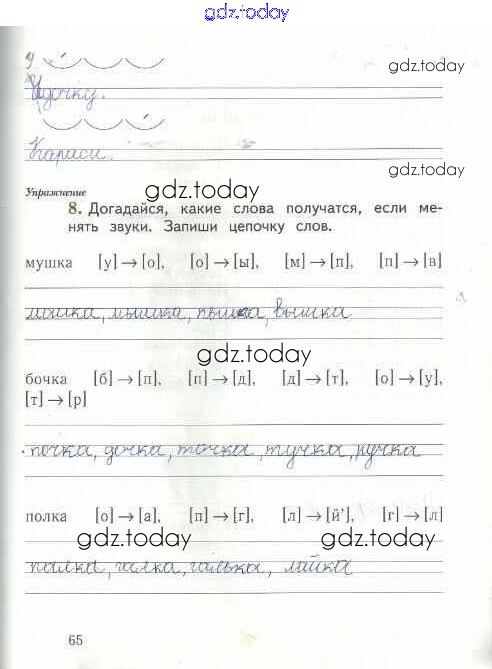 gdz.today
gdz.today
Удочку.
Караси.
gdz.today
Упражнение
gdz.today
8. Догадайся, какие слова получатся, если ме-
нять звуки. Запиши цепочку слов.
мушка [у]→[о], [о]→[ы], [м]→[п], [п]→[в]
мошка, мышка, пышка, вышка
gdz.today
бочка [б]→[п], [п]→[д], [д]→[т], [о]→[у],
[т]→[р]
почка, дочка, точка, тучка, ручка
полка [о]→[а], [п]→[г], [л]→[й'], [г]→[л]
gdz.today gdz.today
палка, галка, галька, лайка
65
gdz.today